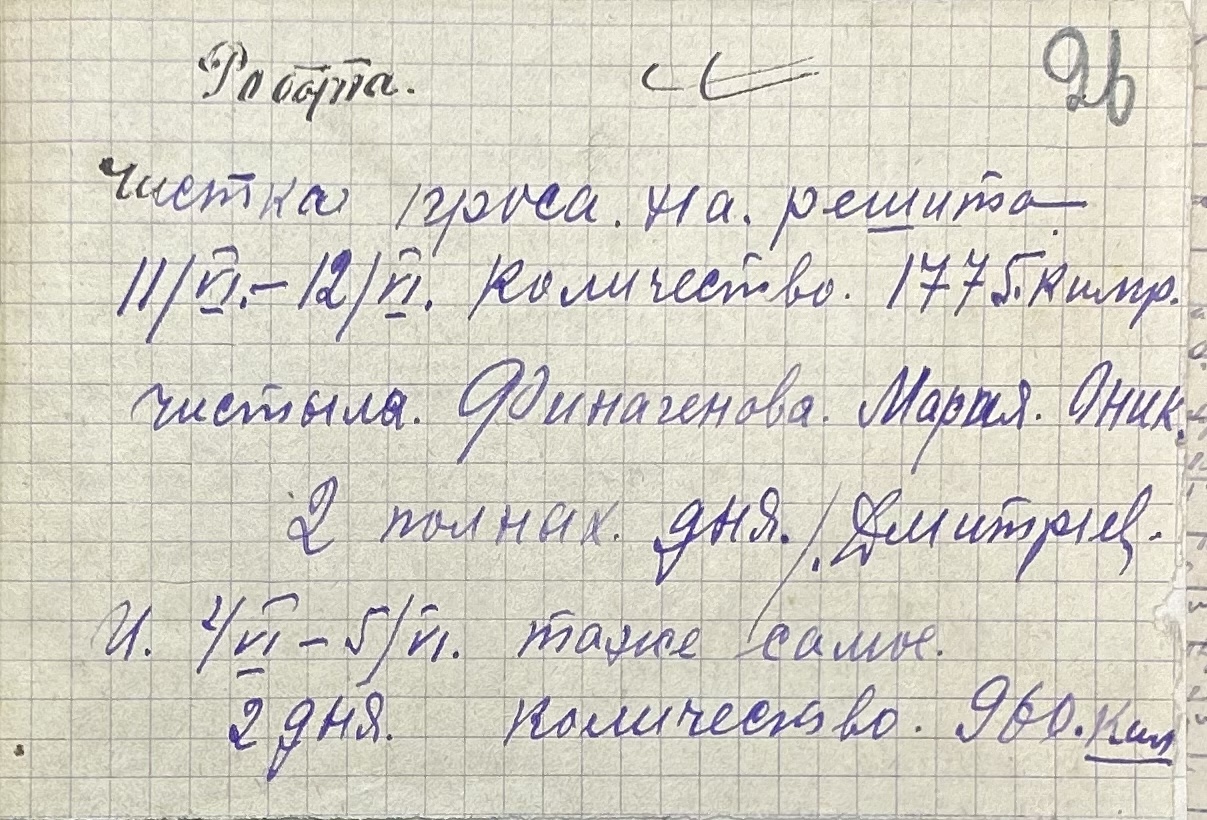 Работа. 26
чистка проса. на. решита
11/VI. – 12/VI. Количество. 1775. Килгр.
чистыла. Одинагенова. Мария. Оник.
2 полнах. дня. /. Дмитриев.
И. 4/VI – 5/VI. таже самое.
2 дня. Количество. 960. Кил